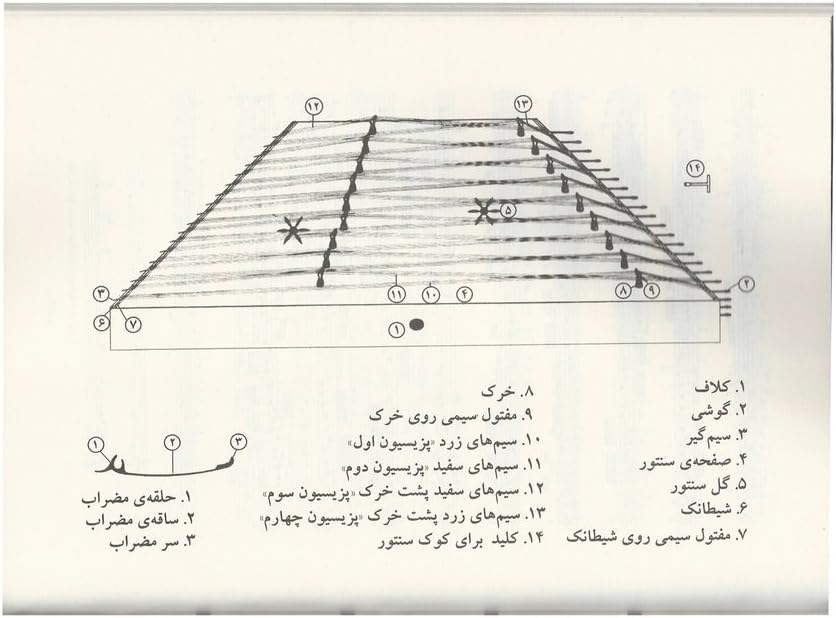 ۱۲
۱۳
۱۴
۵
۲
۳
۱۱
۱۰
۴
۸
۹
۶
۷
۱
۱. کلاف
۲. گوشی
۳. سیم‌گیر
۴. صفحه‌ی سنتور
۵. گل سنتور
۶. شیطانک
۷. مفتول سیمی روی شیطانک
۸. خرک
۹. مفتول سیمی روی خرک
۱۰. سیم‌های زرد «پزیسیون اول»
۱۱. سیم‌های سفید «پزیسیون دوم»
۱۲. سیم‌های سفید پشت خرک «پزیسیون سوم»
۱۳. سیم‌های زرد پشت خرک «پزیسیون چهارم»
۱۴. کلید برای کوک سنتور
۱
۲
۳
۱. حلقه‌ی مضراب
۲. ساقه‌ی مضراب
۳. سر مضراب